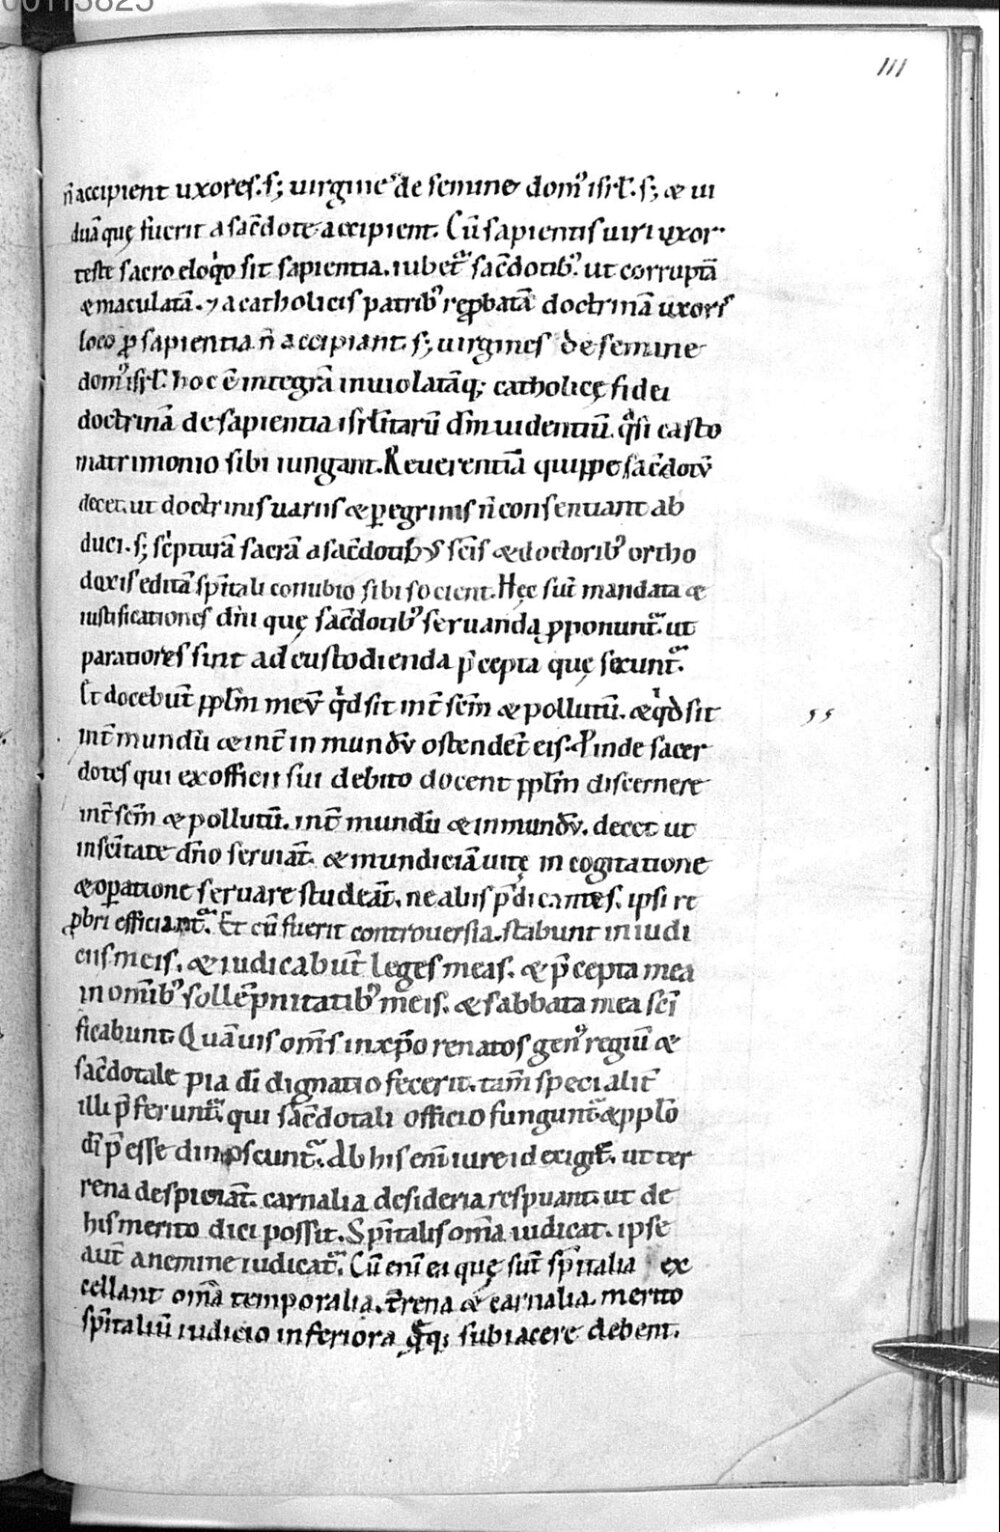 00113825
111
n̄ accipient uxores. s; uirgine᷒ de semine dom᷒ isrl̄. s; & ui
duā quę fuerit a sac̄dote accipient. Cū sapientis uiri uxor
teste sacro eloq̊o sit sapientia. iubet᷑ sac̄dotib᷒ ut corruptā
& maculatā. ⁊ a catholicis patrib᷒ rep̱batā doctrinā uxoris
loco ꝓ sapientia n̄ accipiant. s; uirgines de semine
dom᷒ isrl̄. hoc ē integrā inuiolatāq; catholicę fidei
doctrinā de sapientia isrl̄itarū dm̄ uidentiū. q̊si casto
matrimonio sibi iungant. Reuerentiā quippe sac̄dotū
decet. ut doctrinis uariis & ꝑegrinis n̄ consentiant ab
duci. s; sc̓pturā sacrā a sac̄dotib᷒ scīs & doctorib᷒ ortho
doxis editā sp̄itali conubio sibi socient. Hęc sūt mandata &
iustificationes dn̄i quę sac̄dotib᷒ seruanda ꝓponunt᷑. ut
paratiores sint ad custodienda p̄cepta quę secunt᷑.
Et docebūt ppl̄m meū q̇d sit int̄ scm̄ & pollutū. & q̇d sit
int̄ mundū & int̄ inmundū ostendet̄ eis. Proinde sacer
dotes qui ex officii sui debito docent ppl̄m discernere
int̄ scm̄ & pollutū. int̄ mundū & inmundū. decet ut
in scītate dn̄o seruiāt. & mundiciā uitę in cogitatione
& oꝑatione seruare studeāt. ne aliis p̄dicantes. ipsi re
ꝓbri efficiant᷑. Et cū fuerit controuersia. stabunt in iudi
ciis meis. & iudicabūt leges meas. & p̄cepta mea
in omīb᷒ sollēpnitatib᷒ meis. & sabbata mea scī
ficabunt. Quāuis om̄s in xp̄o renatos gen᷒ regiū &
sac̄dotale pia dī dignatio fecerit. tam̄ specialit̄
illi p̄ferunt᷑. qui sac̄dotali officio fungunt᷑. & pplō
dī p̄esse dinoscunt᷑. Ab his enī iure id exigit᷑. ut ter
rena despiciāt. carnalia desideria respuant. ut de
his merito dici possit. Sp̄italis om̄a iudicat. ipse
aut̄ a nemine iudicat᷑. Cū enī ea quę sūt sp̄italia ex
cellant om̄a temporalia. t̄rena & carnalia. merito
sp̄italiū iudicio inferiora q̊q; subiacere debent.